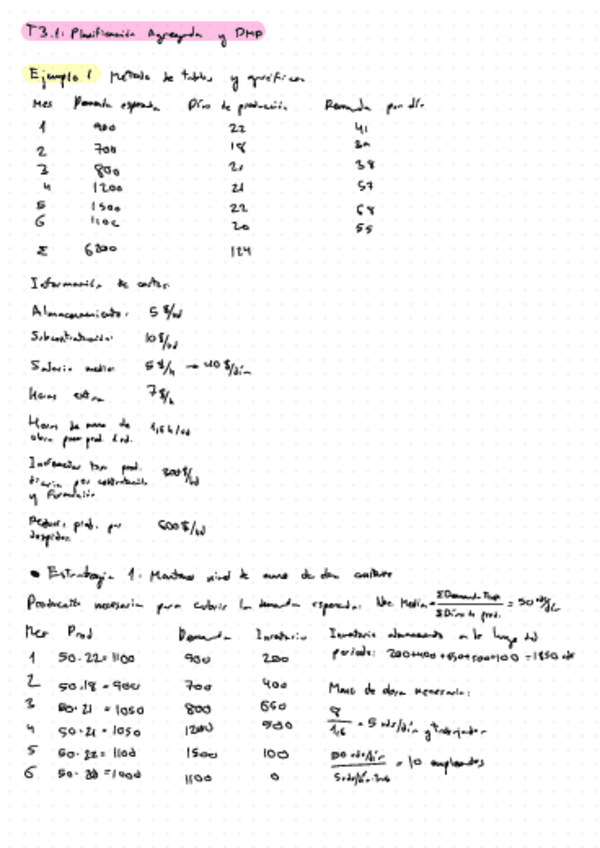 T3.1: Planificación Agregada y PMP
Ejemplo 1 Método de tablas y gráficos
Mes Demanda esperada Días de producción Demanda por día
1 900 22 41
2 700 18 39
3 800 21 38
4 1200 21 57
5 1500 22 68
6 1100 20 55
Σ 6200 124
Información de costes:
Almacenamiento: 5 $/ud
Subcontratación: 10 $/ud
Salario medio: 5 $/h → 40 $/día
Horas extra 7 $/h
Horas de mano de
obra para prod. 1 ud. 1,6 h/ud
Incrementar tasa prod.
diaria por contratación 300 $/ud
y formación
Reducir prod. por
despidos 600 $/ud
• Estrategia 1: Mantener nivel de mano de obra constante
Producción necesaria para cubrir la demanda esperada: Nec Media = Σ Demanda / Σ Días de prod. = 50 uds/día
Mes Prod Demanda Inventario
1 50·22 = 1100 900 200
2 50·18 = 900 700 400
3 50·21 = 1050 800 650
4 50·21 = 1050 1200 500
5 50·22 = 1100 1500 100
6 50·20 = 1000 1100 0
Inventario almacenado a lo largo del
periodo: 200+400+650+500+100 = 1850 uds
Mano de obra necesaria:
8 / 1,6 = 5 uds/día y trabajador
50 uds/día / 5 uds/día·trab = 10 empleados